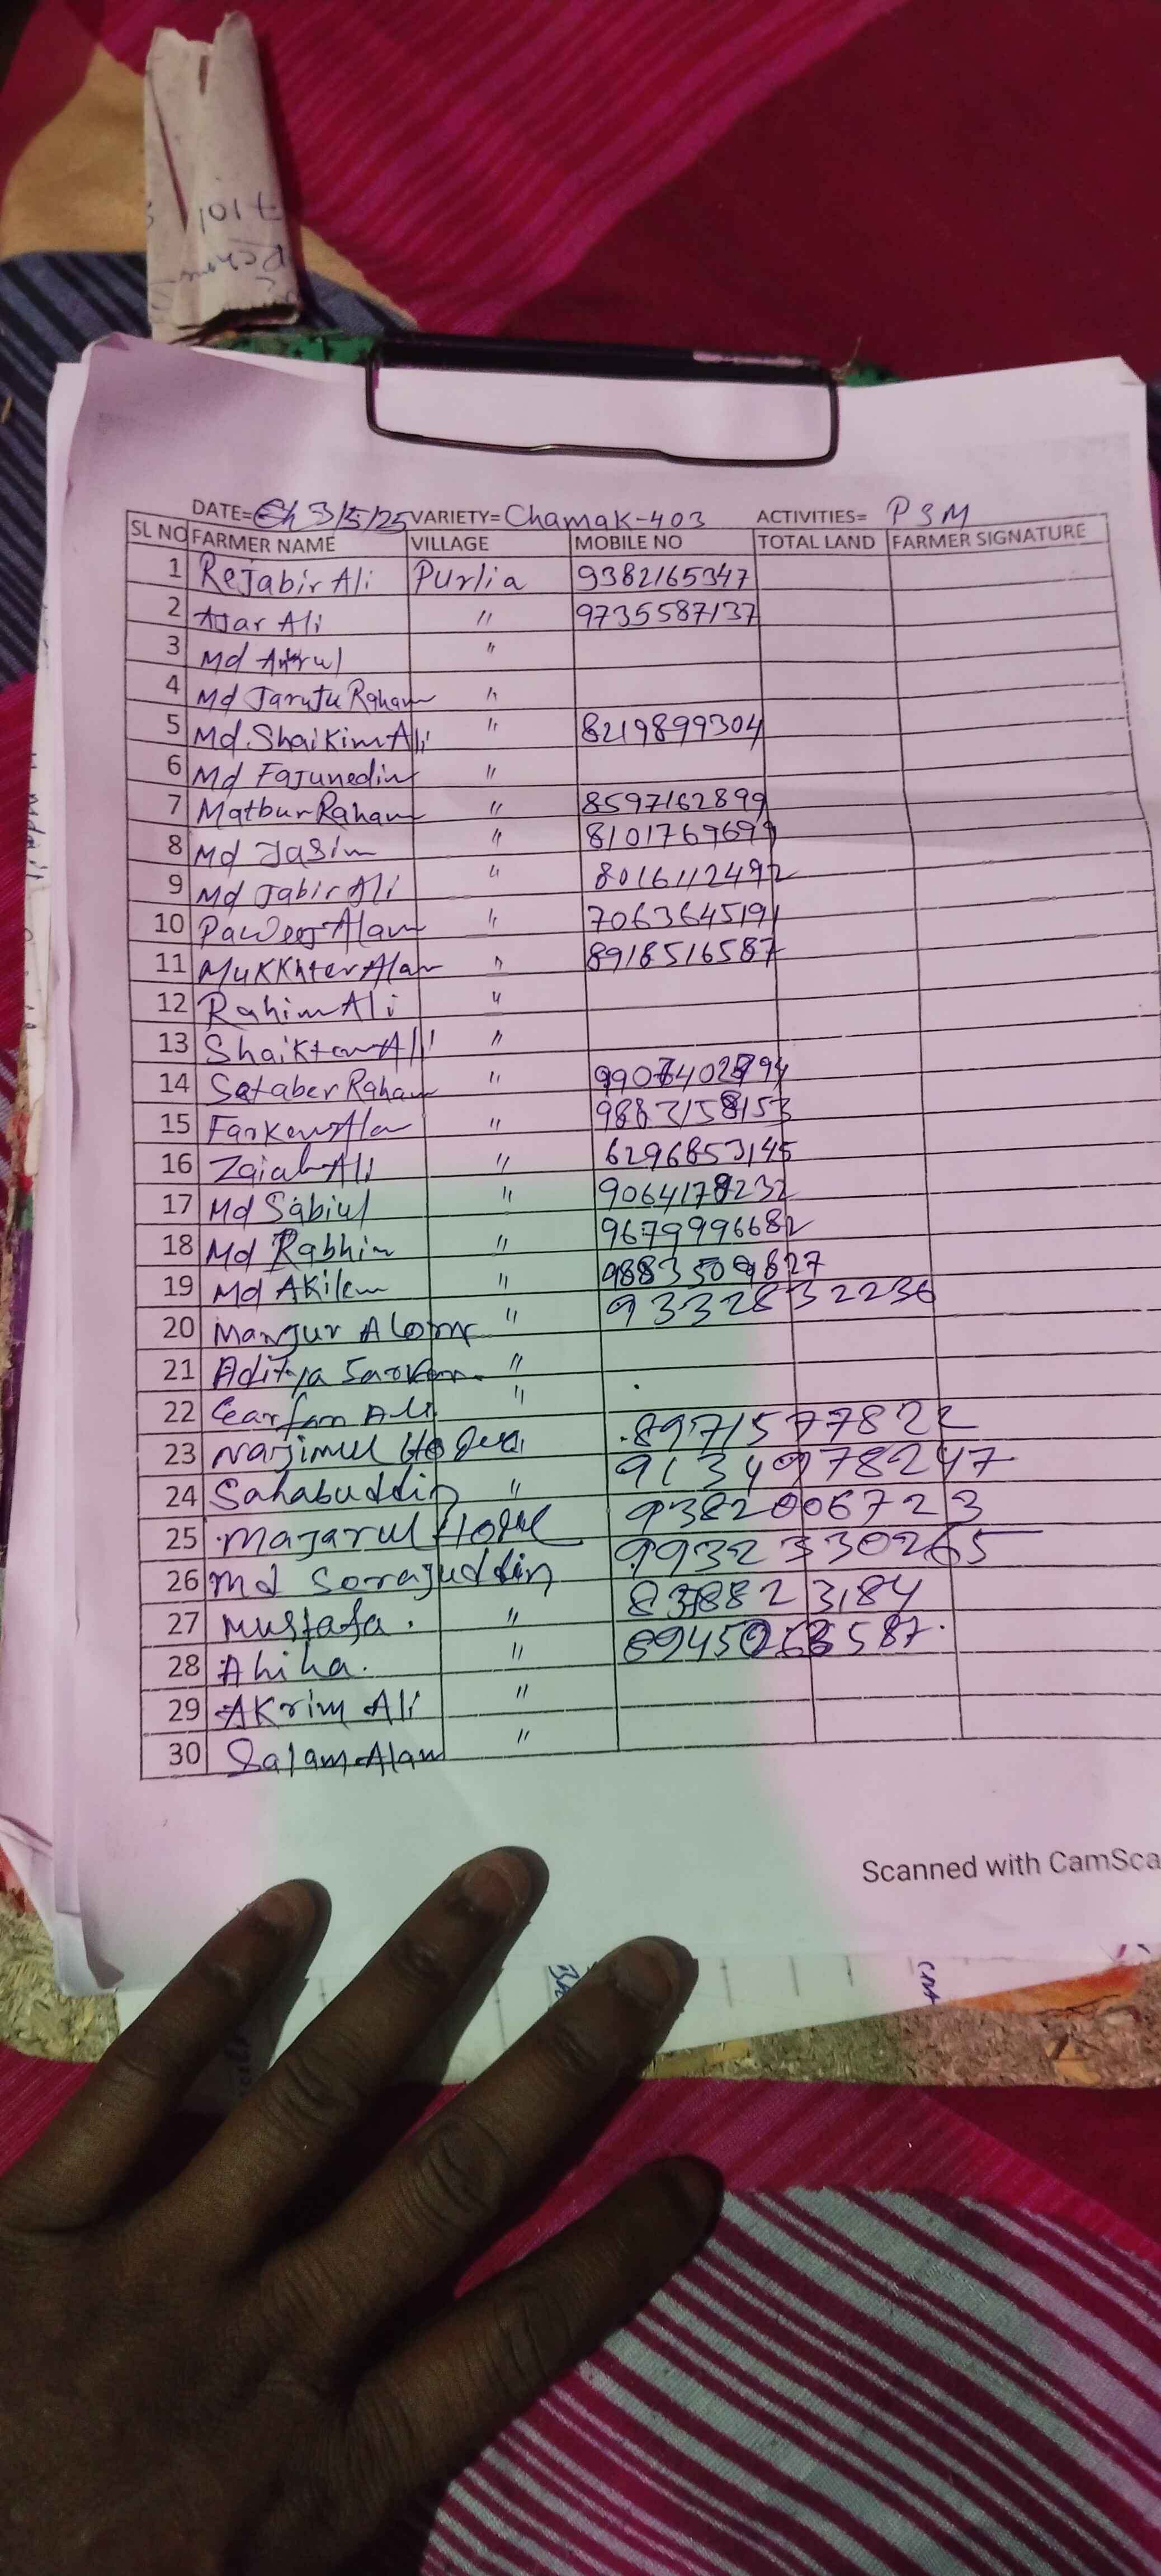 7101
DATE= 3/5/25 VARIETY= Chamak-403 ACTIVITIES= PSM
SL NO FARMER NAME VILLAGE MOBILE NO TOTAL LAND FARMER SIGNATURE
1 Rejabir Ali Purlia 9382165347
2 Ajar Ali " 9735587137
3 Md "
4 Md Raham "
5 Md Shaikim Ali " 8219899304
6 Md Fajunedin "
7 Matbur Raham " 8597162899
8 Md Jasim " 8101769699
9 Md Jabir Ali " 8016112492
10 Paweej Alam " 7063645191
11 Mukkhter Alam " 8918516587
12 Rahim Ali "
13 Ali "
14 Sataber Raham "
15 "
16 Ali " 6296853145
17 Md Sabiul "
18 Md Rabhim " 9679996682
19 Md Akilem "
20 Manjur Alom " 9332832236
21 Aditya Sarkar "
22 Ali "
23 Narjimul Hoque 8971577822
24 Sahabuddin " 913409778247
25 Majarul Hoque 9382006723
26 Md Sorajuddin 99323330265
27 Mustafa. "
28 Ahiha. "
29 Akrim Ali "
30 Salam Alam "
Scanned with CamSca